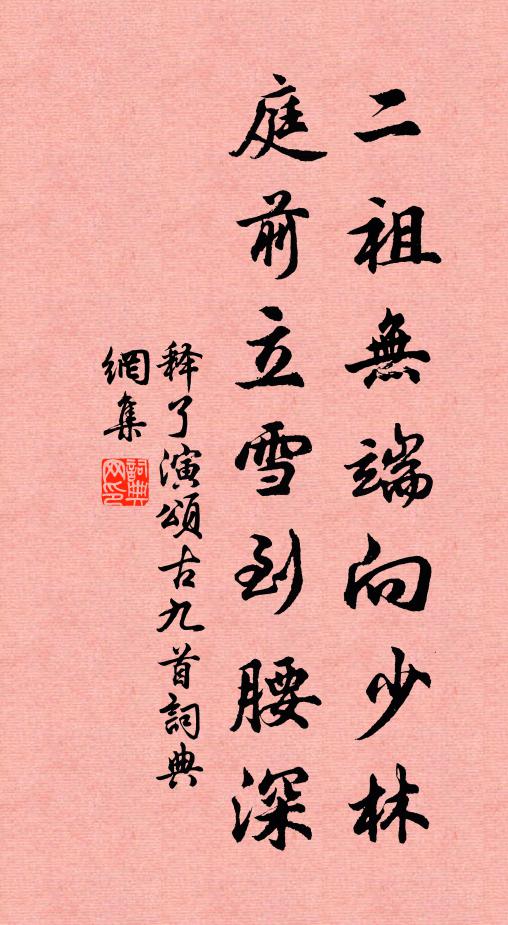 二祖無端向少林
庭前立雪到腰深
释了演頌古九首詞典
網集
詞典網印